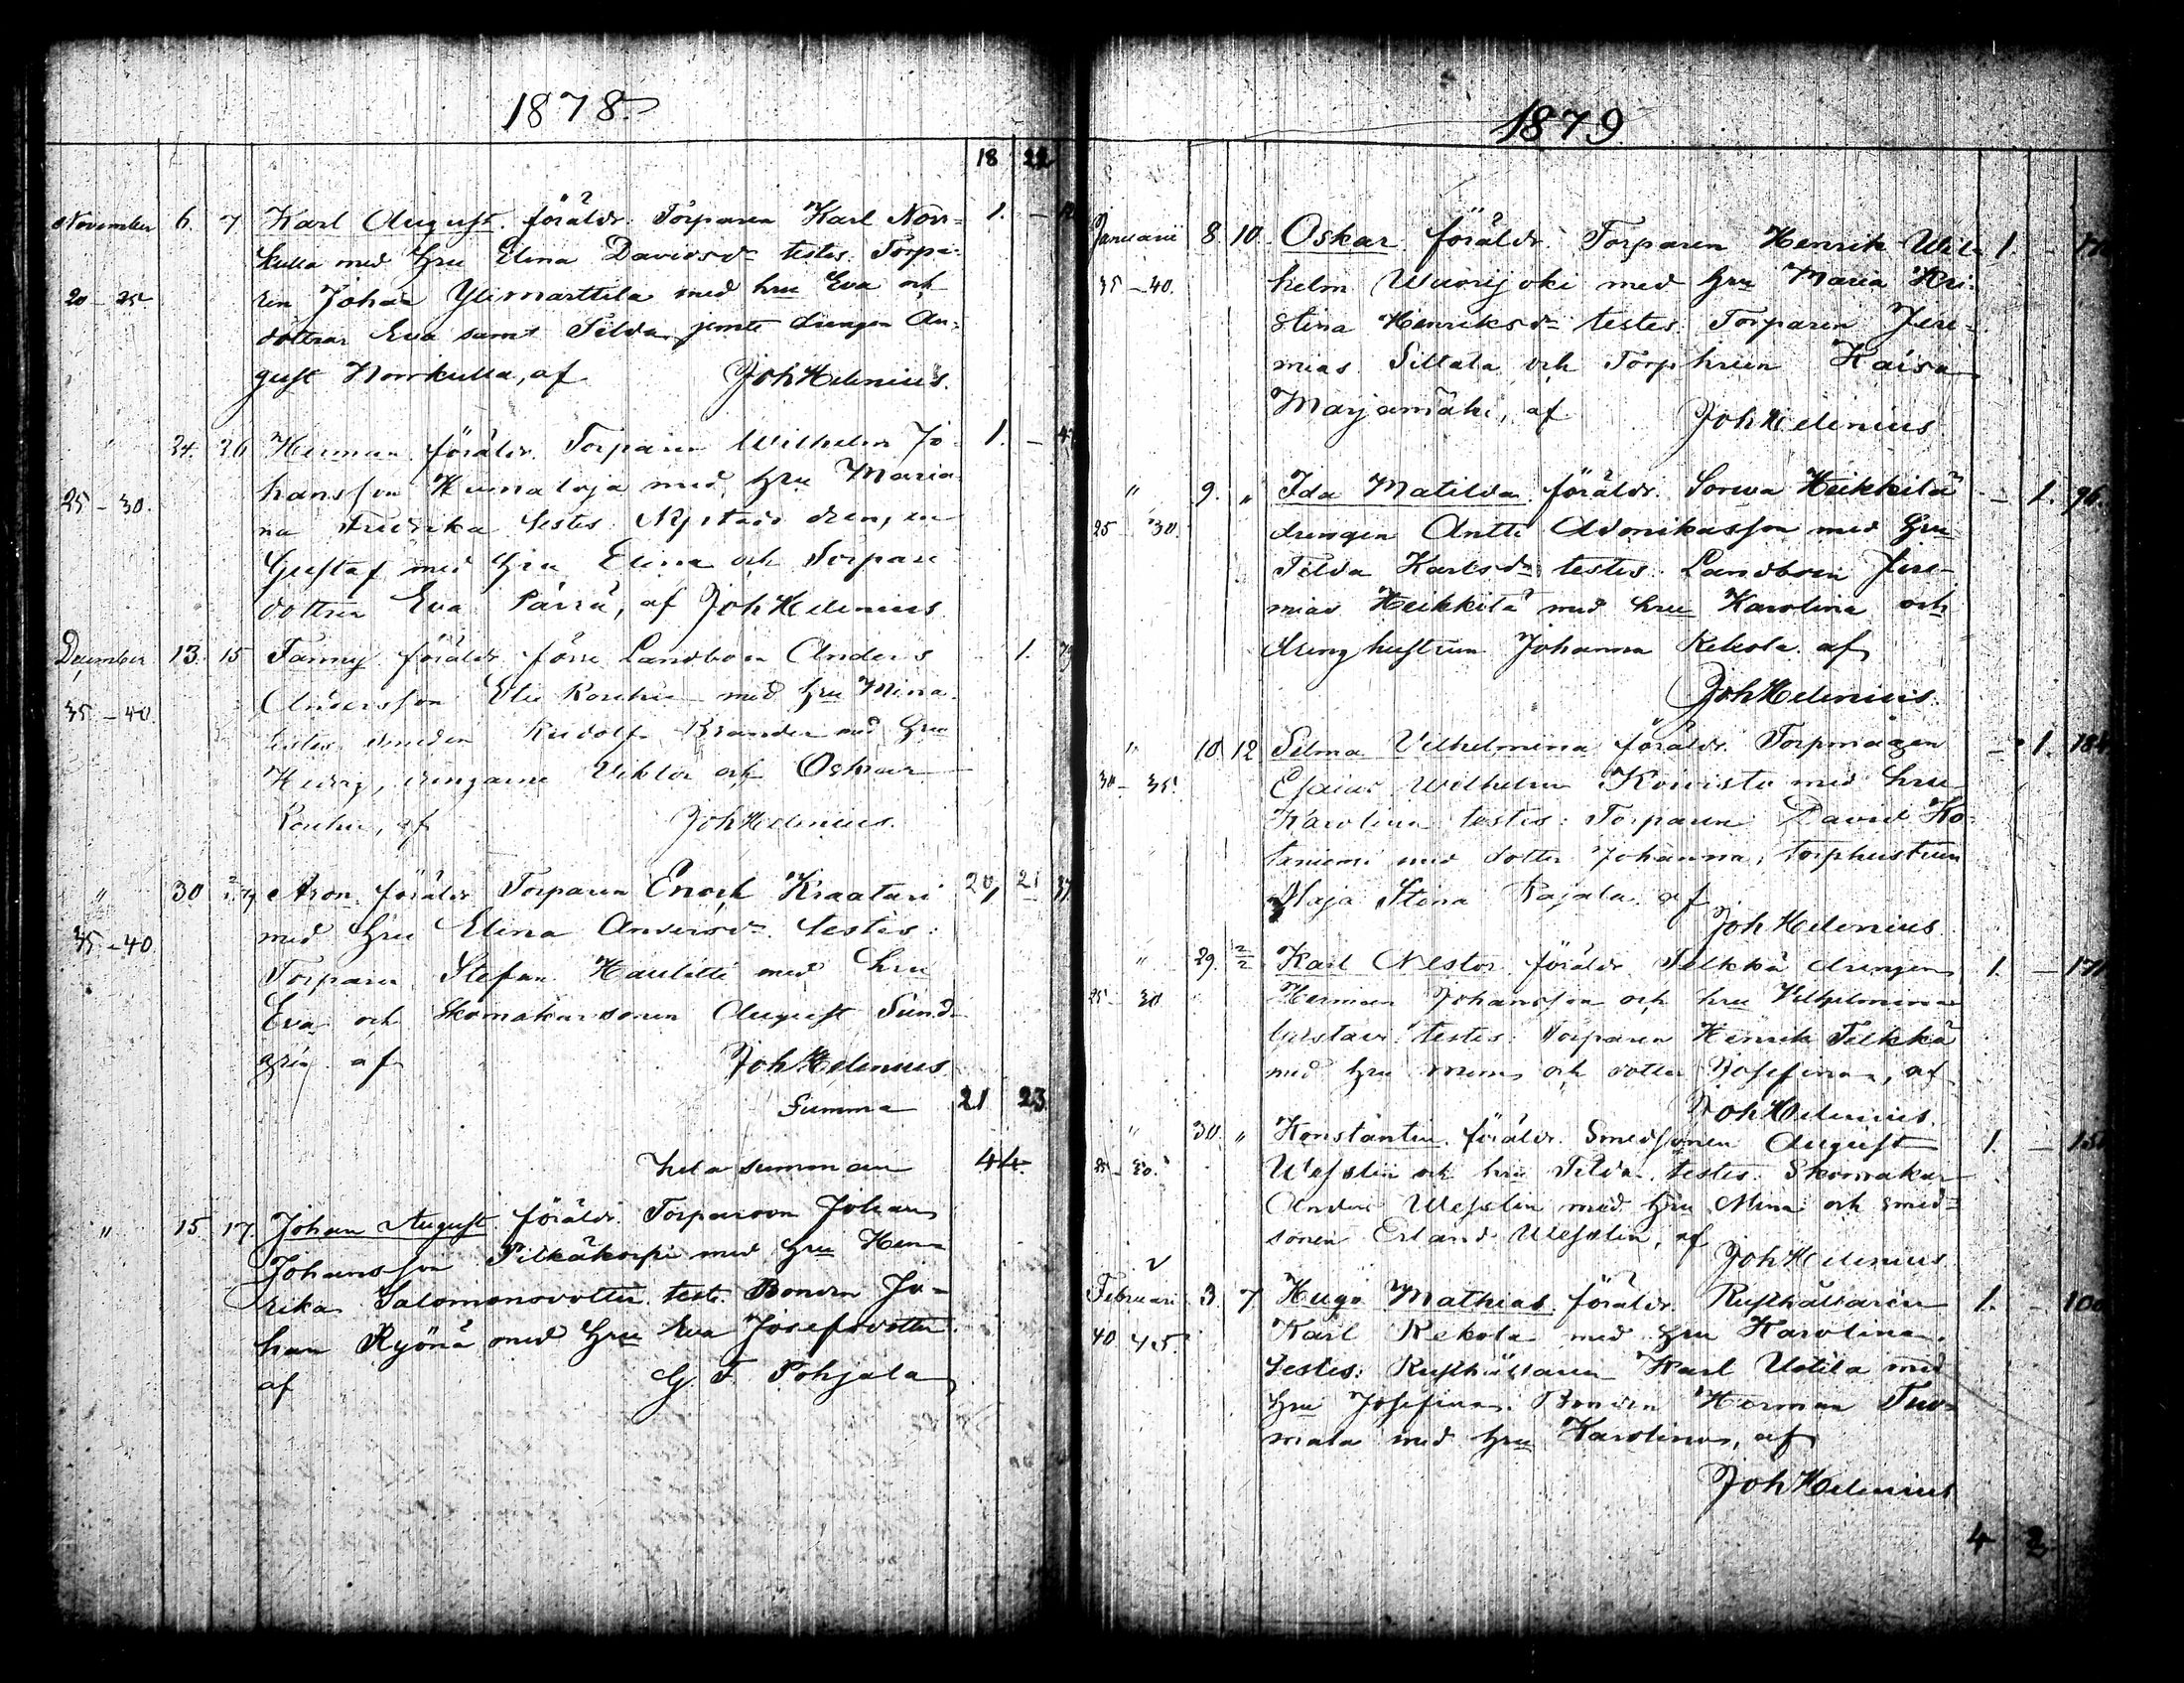 1878
18 22
November 6. 7 Karl August. föräldr. Torparen Karl Norr- 1. –
kulla med Hru Elina Davidsdr testes. Torpa-
20 – 25 ren Johan Ylimarttila med hru Eva och
döttrar Eva samt Tilda jemte drengen Au-
gust Norrkulla, af Joh Helenius.
" 24. 26 Herman. föräldr. Torparen Wilhelm Jo- 1. –
hansson Humaloja med Hru Maria
25 – 30. na Fredrika testes
Gustaf med Hru Elina och Torpare
dottren Eva Pärrä, af Joh Helenius
December 13. 15 Fanny. föräldr. förre Landboen Anders 1.
Andersson Rouhu med Hru Mina.
35 – 40. testes. smeden Rudolf Brander med Hru
Hedvig, drengarne Viktor och Oskar
Rouhu, af Joh Helenius.
" 30 Aron. föräldr Torparen Enoch Kraatari 20, 21 37
med Hru Elina Andersdr. testes:
35 – 40. Torparen Stefan med hru
Eva och Skomakarsonen August Sund-
gren af Joh Helenius
Summa 21 23
hela summan 44.
" 15. 17. Johan August. föräldr. Torparson Johan
Johansson Pitkäkorpi med Hru Hen-
rika Salomonsdotter. test. Bonden Jo-
han Ryönä med Hru Eva Josefsdotter
af G. F. Pohjala
1879
Januarii 8 10. Oskar. föräldr. Torparen Henrik Wil- 1. –
35 – 40. helm Wuorijoki med Hru Maria Kri-
stina Henriksdr testes. Torparen Jere-
mias Sillala och Torphrun Kaisa
Marjamäki, af Joh Helenius.
" 9. " Ida Matilda. föräldr. Sorwa Heikkilä – 1. 96.
25 – 30. drengen Antti Adonikasson med Hru
Tilda Karlsdr testes. Landboen Jere-
mias Heikkilä med hru Karolina och
drenghustrun Johanna Rekola. af
Joh Helenius.
" 10 12 Selma Vilhelmina föräldr. Torpmågen – 1. 184
30 – 35. Esaias Wilhelm Koivisto med hru
Karolina testes: Torparen David Ko-
taniemi med dotter Johanna, torphustrun
Maja Stina Rajala. af
Joh Helenius
" 29. 2/2 Karl Nestor. föräldr. Pelkkä drengen 1. – 171
25 – 30 Herman Johansson och hru Vilhelmina
Gustavs. testes: Torparen Henrik Pelkkä
med hru Mina och dotter Josefina, af
Joh Helenius.
" 30. " Konstantin. föräldr. Smedsonen August 1. –
25 – 30. Wesslin och hru Tilda. testes. Skomakar
Anders Wesslin med Hru Mina och smed-
sonen Erland Wesslin, af
Joh Helenius
Februari 3. 7 Hugo Mathias. föräldr. Rusthållaren 1. 100
40 45. Karl Rekola med Hru Karolina.
testes: Rusthållaren Karl Uotila med
Hru Josefina. Bonden Herman Tuo-
mala med Hru Karolina, af
Joh Helenius
4 3